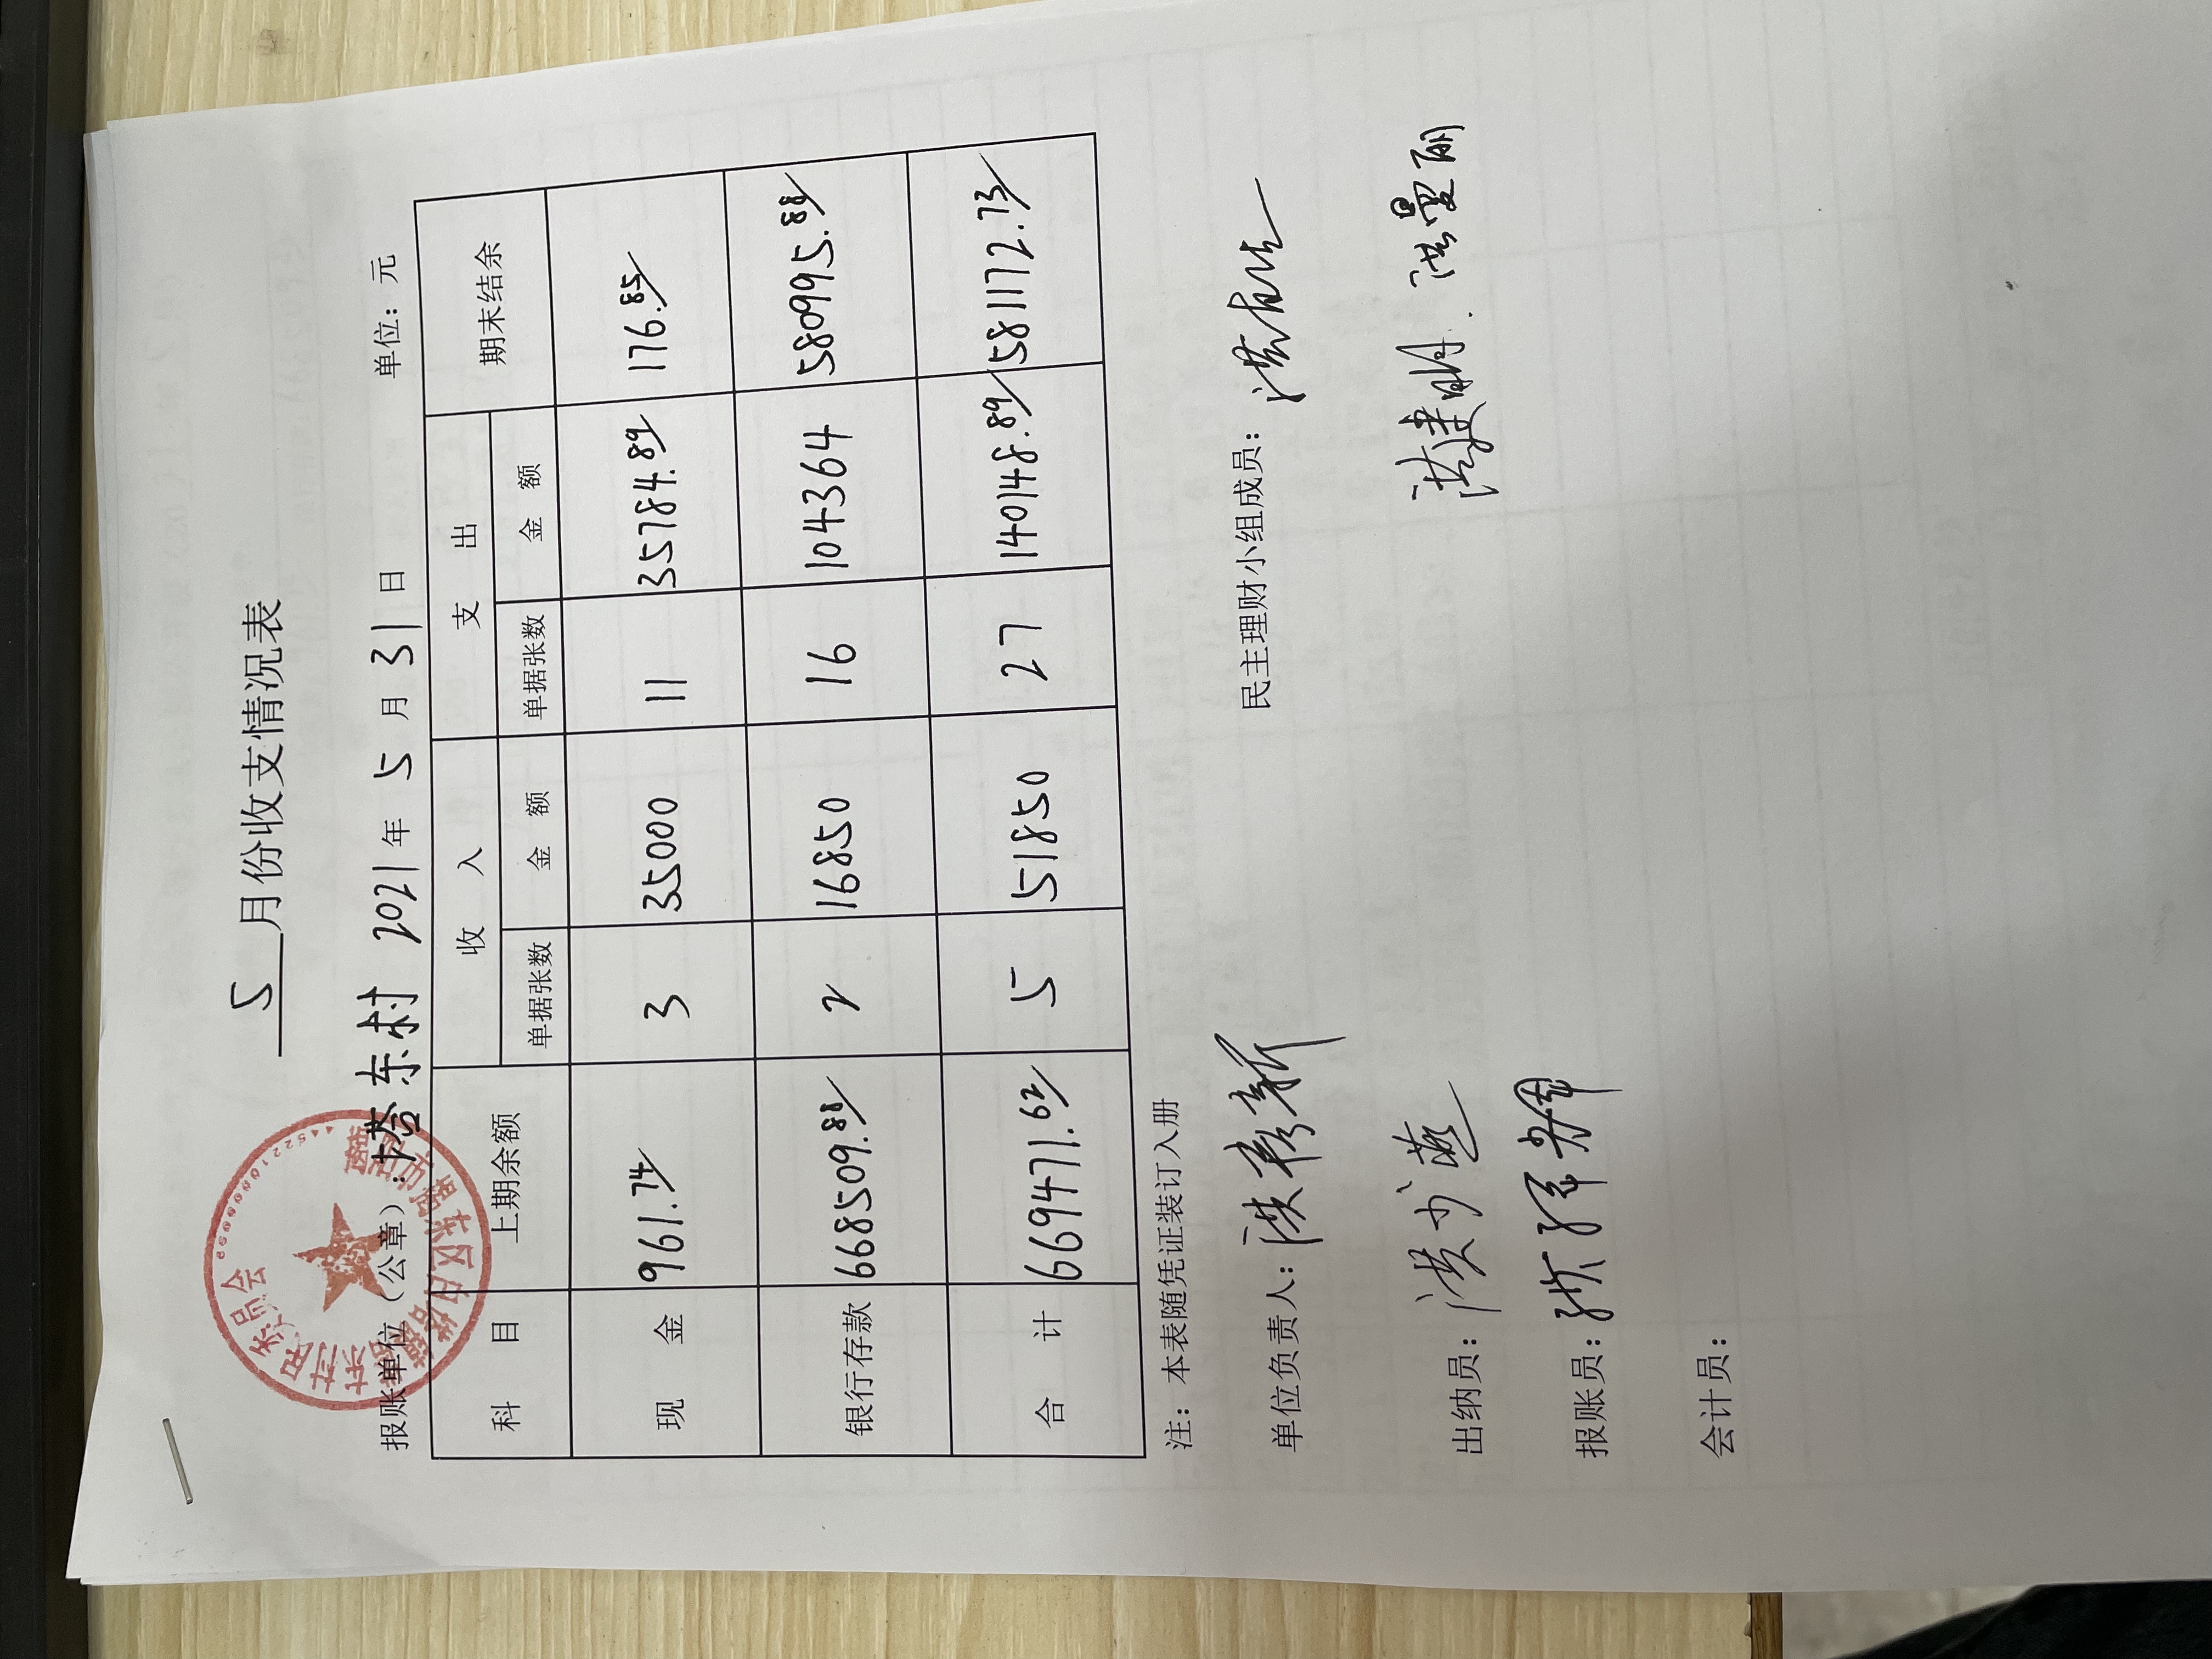 5月份收支情况表
报账单位（公章）：塔东村 2021年5月31日 单位：元
科 目 上期余额 收 入 支 出 期末结余
单据张数 金 额 单据张数 金 额
现 金 961.74 3 35000 11 35784.89 176.85
银行存款 668509.88 2 16850 16 104364 580995.88
合 计 669471.62 5 51850 27 140148.89 581172.73
注：本表随凭证装订入册
单位负责人： 民主理财小组成员：
出纳员：洪少燕 洪建明.洪曼丽
报账员：
会计员：